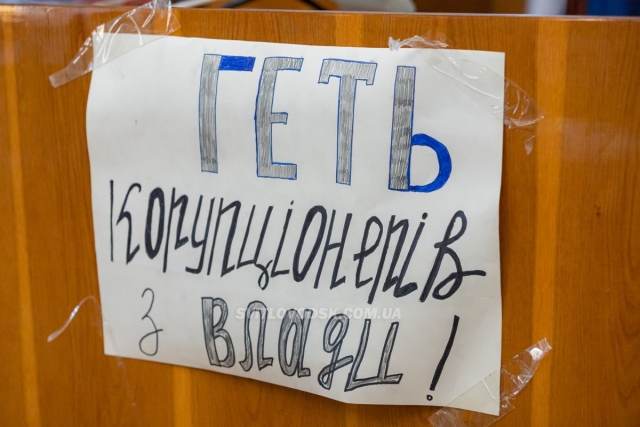 ГЕТЬ
корупціонерів
з влади!
SVITLOVODSK.COM.UA